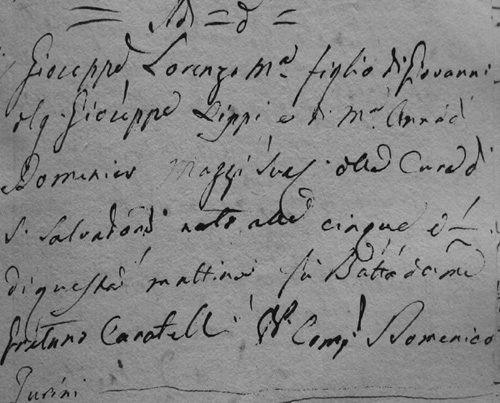 Adì = d =
Gioseppe Lorenzo Mª figlio di Giovanni
del q. Gioseppe Lippi e di Mª Anna di
Domenico Maggi sua della Cura di
S. Salvatore nato alle cinque e
di questa mattina fu Batt.º da me
Caratelli Comp. Domenico
Turini